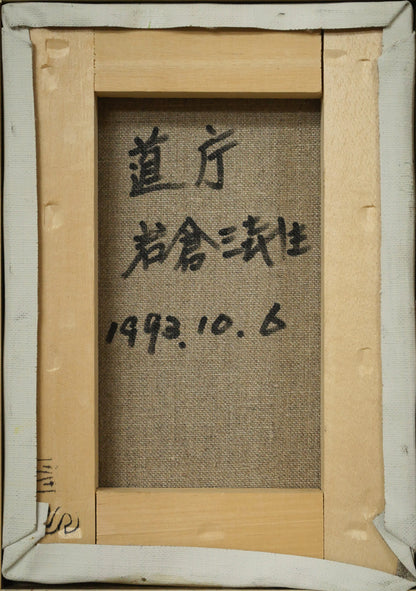 道庁
岩倉三
1993.10.6